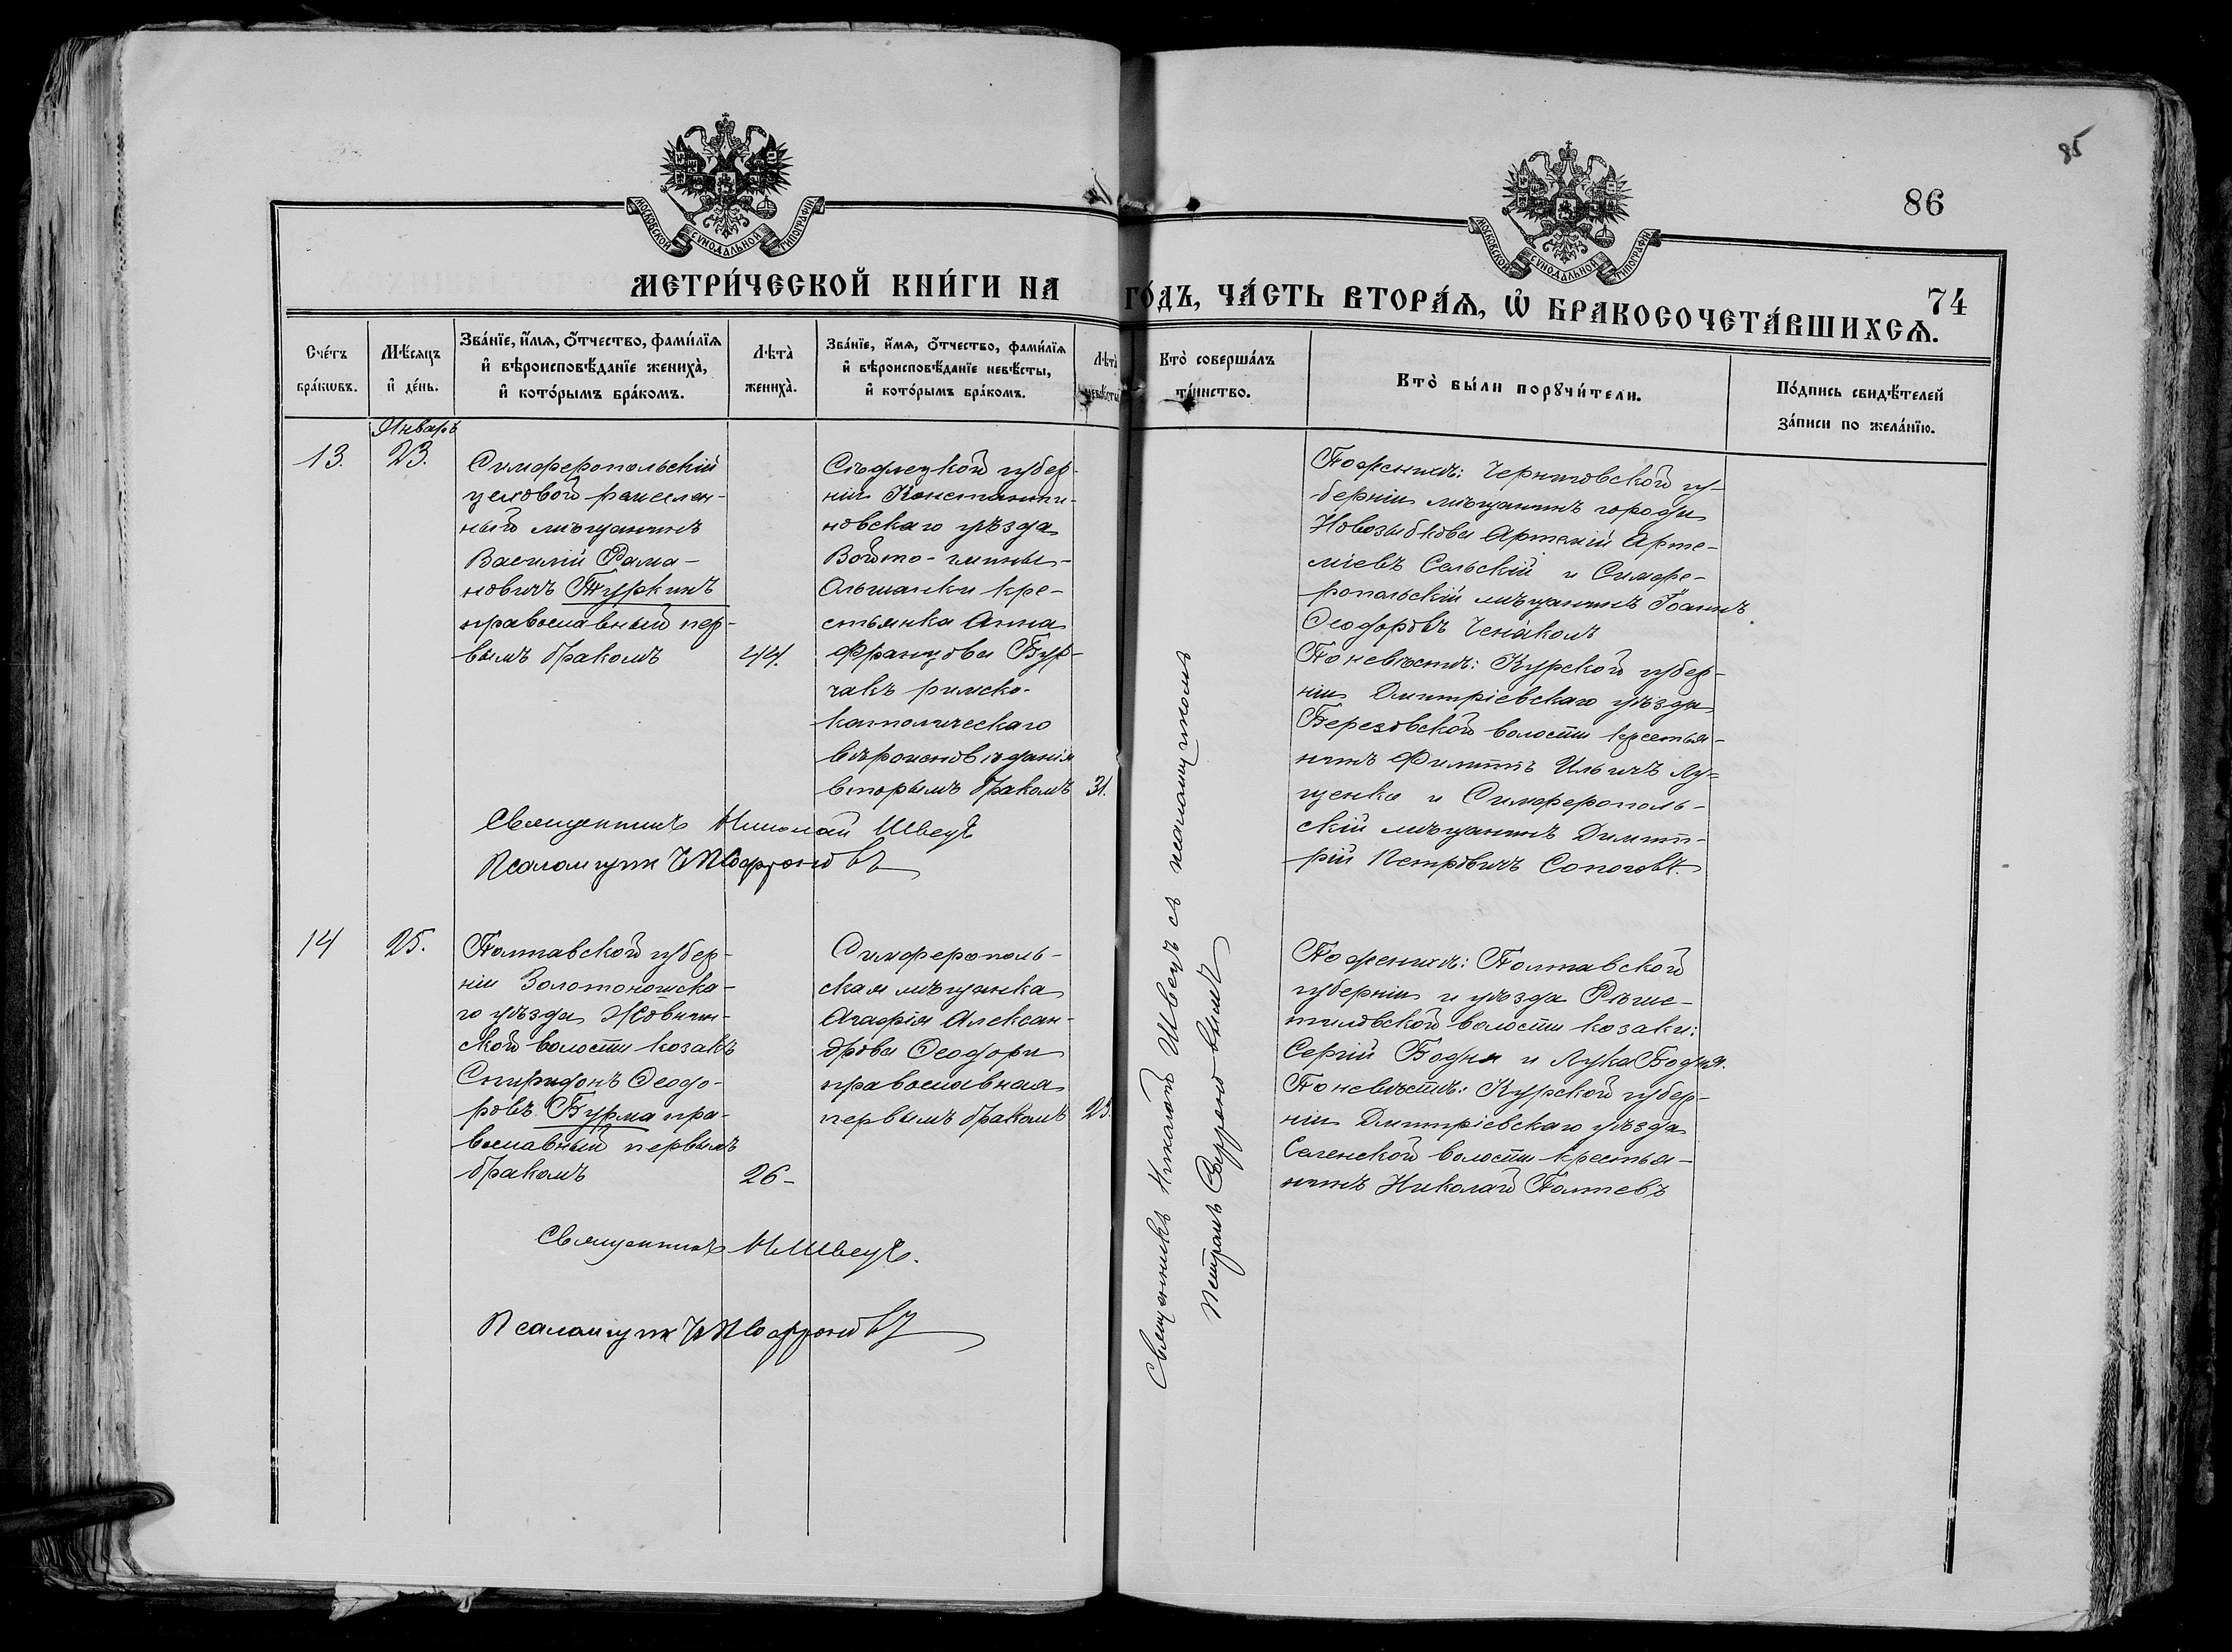 85
86
74
МОСКОВСКОЙ СѴНОДАЛЬНОЙ ТИПОГРАФІИ
МОСКОВСКОЙ СѴНОДАЛЬНОЙ ТИПОГРАФІИ
МЕТРИ́ЧЕСКОЙ КНИ́ГИ НА ГО́ДЪ, ЧА́СТЬ ВТОРА́Я, Ѡ҆ БРАКОСОЧЕТА́ВШИХСЯ.
Сче́тъ
бра́кѡвъ.
Мѣ́сяцъ
и҆ де́нь.
Зва́нїе, и҆́мя, о҆́тчество, фами́лїя
и҆ вѣроисповѣ́данїе жениха̀,
и҆ кото́рымъ бра́комъ.
Лѣта̀
жениха̀.
Зва́нїе, и҆́мя, о҆́тчество, фами́лїя
и҆ вѣроисповѣ́данїе невѣ́сты,
и҆ кото́рымъ бра́комъ.
Лѣта̀
невѣ́сты
Кто̀ соверша́лъ
та́инство.
Кто̀ бы́ли порꙋчи́тели.
По́дпись свидѣ́телей
за́писи по жела́нїю.
Январь
13.
23.
Симферопольскій
цеховой ремеслен-
ный мѣщанинъ
Василій Рома-
новичъ Туркинъ
православный пер-
вымъ бракомъ
44.
Сѣдлецкой губер-
ніи Константи-
новскаго уѣзда
Войто-гмины
Ольшанки кре-
стьянка Анна
Францова Бур-
чакъ римско-
католическаго
вѣроисповѣданія
вторымъ бракомъ
31.
Священникъ Николай Швецъ
Псаломщик П Софроновъ
По женихѣ: Черниговской гу-
берніи мѣщанинъ города
Новозыбкова Артемій Арте-
міевъ Сельскій и Симфе-
ропольскій мѣщанинъ Іоаннъ
Ѳеодоровъ
По невѣстѣ: Курской губер-
ніи Дмитріевскаго уѣзда
Березовской волости крестья-
нинъ Филиппъ Ильичъ Лу-
ценко и Симферополь-
скій мѣщанинъ Димит-
рій Петровичъ Сопоговъ.
14
25.
Полтавской губер-
ніи Золотоношска-
го уѣзда
ской волости козакъ
Спиридонъ Ѳеодо-
ровъ Бурма пра-
вославный первымъ
бракомъ
26-
Симферополь-
ская мѣщанка
Агафія Алексан-
дрова Ѳеодори
православная
первымъ бракомъ
Священникъ Н Швецъ.
Псаломщик П Софроновъ
По женихѣ: Полтавской
губерніи и уѣзда Рѣше-
тиловской волости козаки:
Сергій Бодня и Лука Бодня.
По невѣстѣ: Курской губер-
ніи Дмитріевскаго уѣзда
Селенской волости крестья-
нинъ Николай Полтевъ
Священникъ Николай Швецъ съ псаломщикомъ
Петромъ Софроновымъ